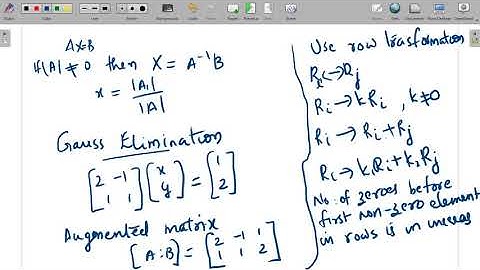 AX=B
If |A| ≠ 0 then X = A⁻¹B
x = |A₁| / |A|
Gauss Elimination
[2 -1; 1 1] [x; y] = [1; 2]
Augmented matrix
[A:B] = [2 -1 1; 1 1 2]
Use row trasformation
Ri ↔ Rj
Ri → kRi , k≠0
Ri → Ri + Rj
Ri → k₁Ri + k₂Rj
No: of zeroes before
first non-zero element
in rows is in